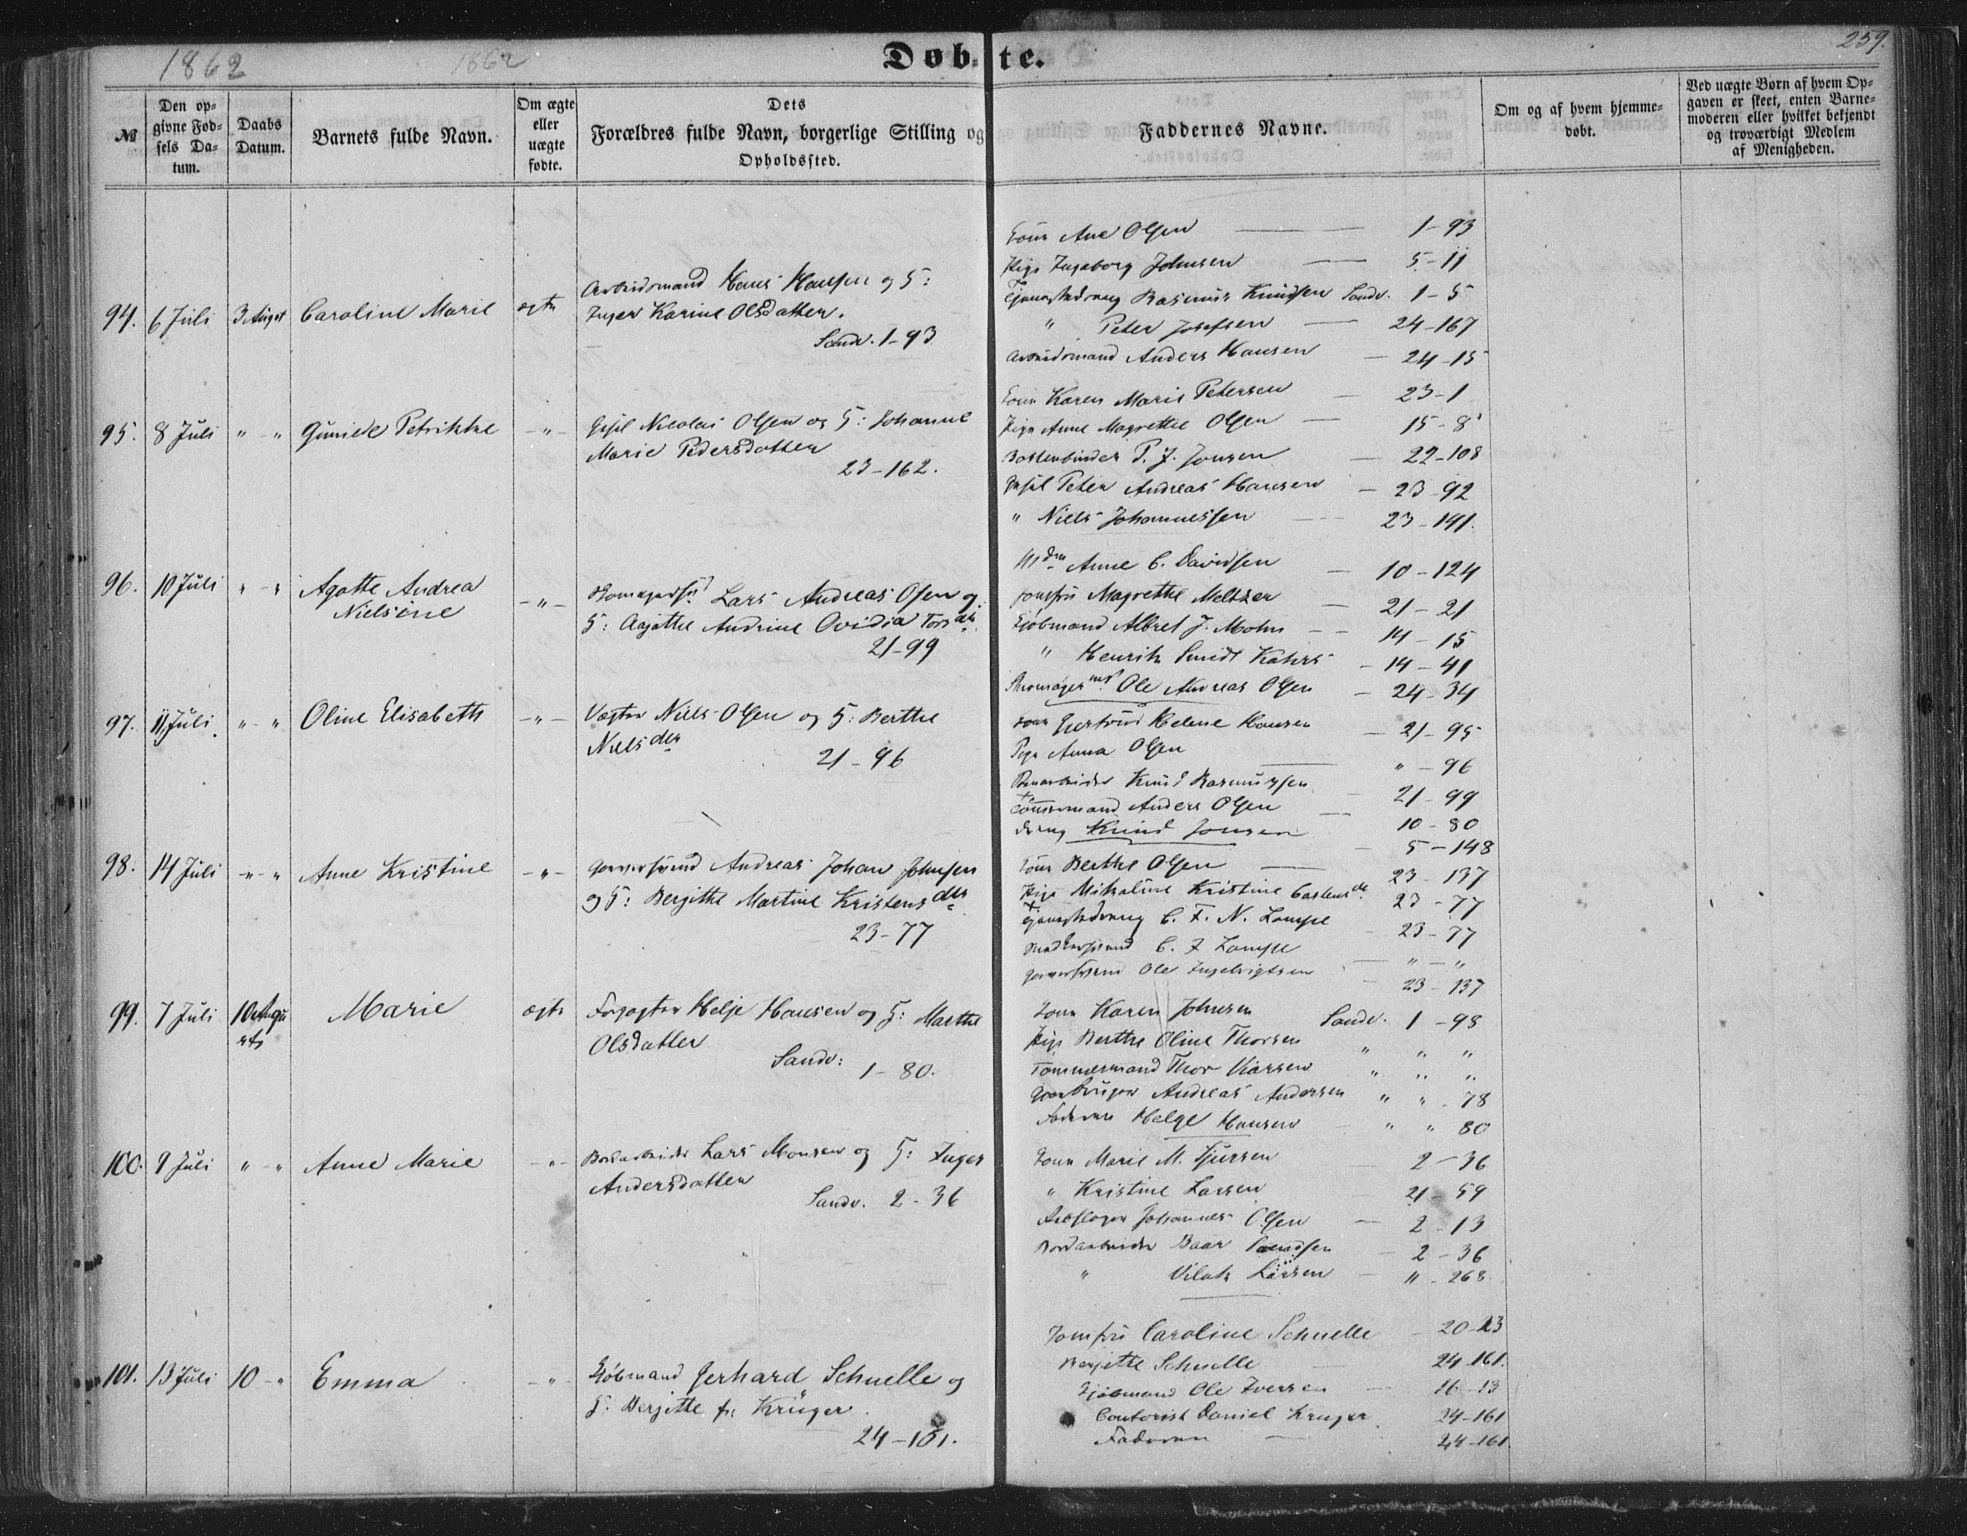 1862
1862
Døbte.
259.
№
Den opgivne Fødsels Datum.
Daabs Datum.
Barnets fulde Navn.
Om ægte eller uægte fødte.
Dets Forældres fulde Navn, borgerlige Stilling og Opholdssted.
Faddernes Navne.
Om og af hvem hjemmedøbt.
Ved uægte Børn af hvem Opgaven er skeet, enten Barnemoderen eller hvilket bekjendt og troværdigt Medlem af Menigheden.
94. 6 Juli 3 August Caroline Marie ægte
Arbeidsmand Hans Hansen og H:
Inger Karine Olsdatter.
Sandv. 1-93
Kone Ane Olsen 1-93
Pige Ingeborg Johnsen 5-11
Tjenestedreng Rasmus Knudsen Sandv. 1-5
" Peter Josefsen 24-167
Arbeidsmand Anders Hansen 24-15
95. 8 Juli " - " Gunilde Petrikke - " -
Nicolai Olsen og H: Johanne
Marie Pedersdatter
23-162.
Kone Karen Marie Petersen 23-1
Pige Anne Magrethe Olsen 15-8
P. J. Jonsen 22-108
Peter Andreas Hansen 23-92
" Niels Johannessen 23-141.
96. 10 Juli " - " Agatte Andrea
Nielsine - " -
Lars Andreas Olsen og
H: Agathe Andrine Ovidia Torsdtr.
21-99
Anne C. Davidsen 10-124
Jomfru Magrethe Meltzer 21-21
Kjøbmand Albret J. Mohn 14-15
" Henrik Smidt Kahrs 14-41
Ole Andreas Olsen 24-34
97. 11 Juli. " - " Oline Elisabeth - " -
Vægter Niels Olsen og H: Berthe
Nielsdtr
21-96
Kone Gjertrud Helene Hansen 21-95
Pige Anna Olsen " - 96
Knud Rasmussen 21-99
Anders Olsen 10-80
dreng Knud Jonsen 5-148
98. 14 Juli " - " Anne Kristine - " -
Andreas Johan Johnsen
og H: Bergithe Martine Kristensdtr
23-77
Kone Berthe Olsen 23-137
Pige Mikaline Kristine 23-77
Tjenestedreng C. F. N. Lampe 23-77
C. F. Lampe " - "
Ole Ingebrigtsen 23-137
99. 7 Juli 10 August Marie ægte
Helje Hansen og H: Marthe
Olsdatter
Sandv: 1-80.
Kone Karen Johnsen Sandv. 1-98
Pige Berthe Oline Thorsen " " "
Tømmermand Thor " " "
Andreas Andersen " " 78
Faderen Helge Hansen " " 80
100. 9 Juli " - " Anne Marie - " -
Bordarbeider Lars Monsen og H: Inger
Andersdatter
Sandv. 2-36
Kone Marie M. 2-36
" Kristine Larsen 21-59
Johannes Olsen 2-13
Bordarbeider 2-36
" Larsen " - 268
101. 13 Juli 10 - " Emma - " -
Kjøbmand Gerhard Schuelle og
H: Bergitte f: Krüger.
24-161.
Jomfru Caroline Schuelle 20-23
Bergitte Schuelle 24-161.
Kjøbmand Ole Iversen 16-13
Contorist Daniel Kruger 24-161
Faderen 24-161